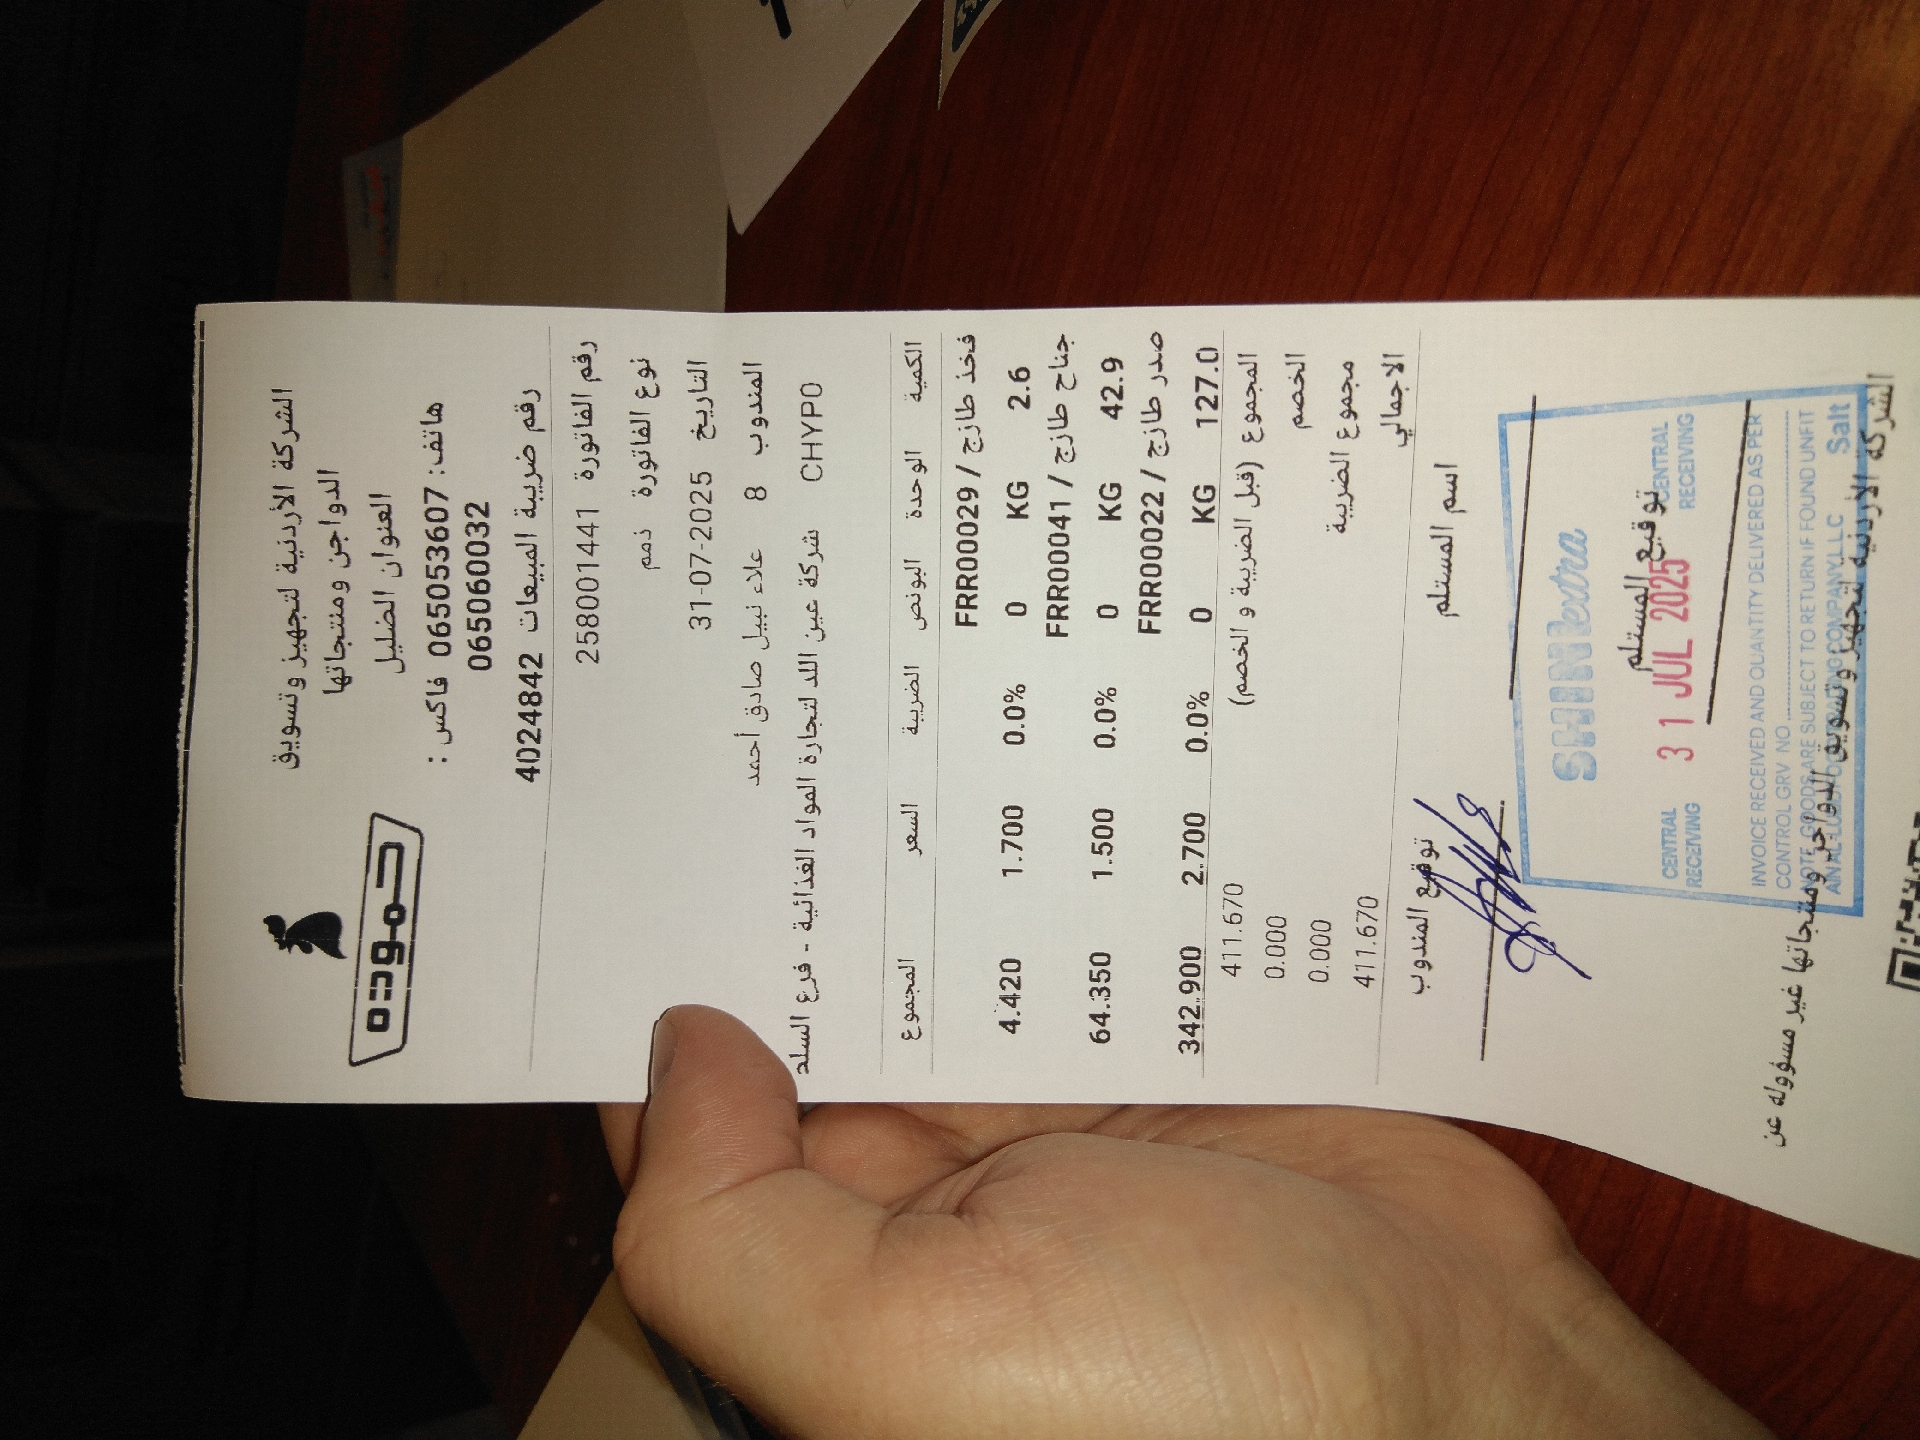 حموده
الشركة الأردنية لتجهيز وتسويق
الدواجن ومنتجاتها
العنوان الضليل
هاتف: 065053607 فاكس :
065060032
رقم ضريبة المبيعات 4024842
رقم الفاتورة 258001441
نوع الفاتورة ذمم
التاريخ 31-07-2025
المندوب 8 علاء نبيل صادق أحمد
CHYPO شركة عين اللد لتجارة المواد الغذائية - فرع السلد
الكمية الوحدة البونص الضريبة السعر المجموع
فخذ طازج / FRR00029
2.6 KG 0 0.0% 1.700 4.420
جناح طازج / FRR00041
42.9 KG 0 0.0% 1.500 64.350
صدر طازج / FRR00022
127.0 KG 0 0.0% 2.700 342.900
المجموع (قبل الضريبة و الخصم) 411.670
الخصم 0.000
مجموع الضريبة 0.000
الاجمالي 411.670
اسم المستلم توقيع المندوب
extra
توقيع المستلم
CENTRAL RECEIVING 31 JUL 2025 CENTRAL RECEIVING
INVOICE RECEIVED AND QUANTITY DELIVERED AS PER
CONTROL GRV NO
NOTE GOODS ARE SUBJECT TO RETURN IF FOUND UNFIT
COMPANY LLC Salt
الشركة الأردنية لتجهيز وتسويق الدواجن ومنتجاتها غير مسؤوله عن